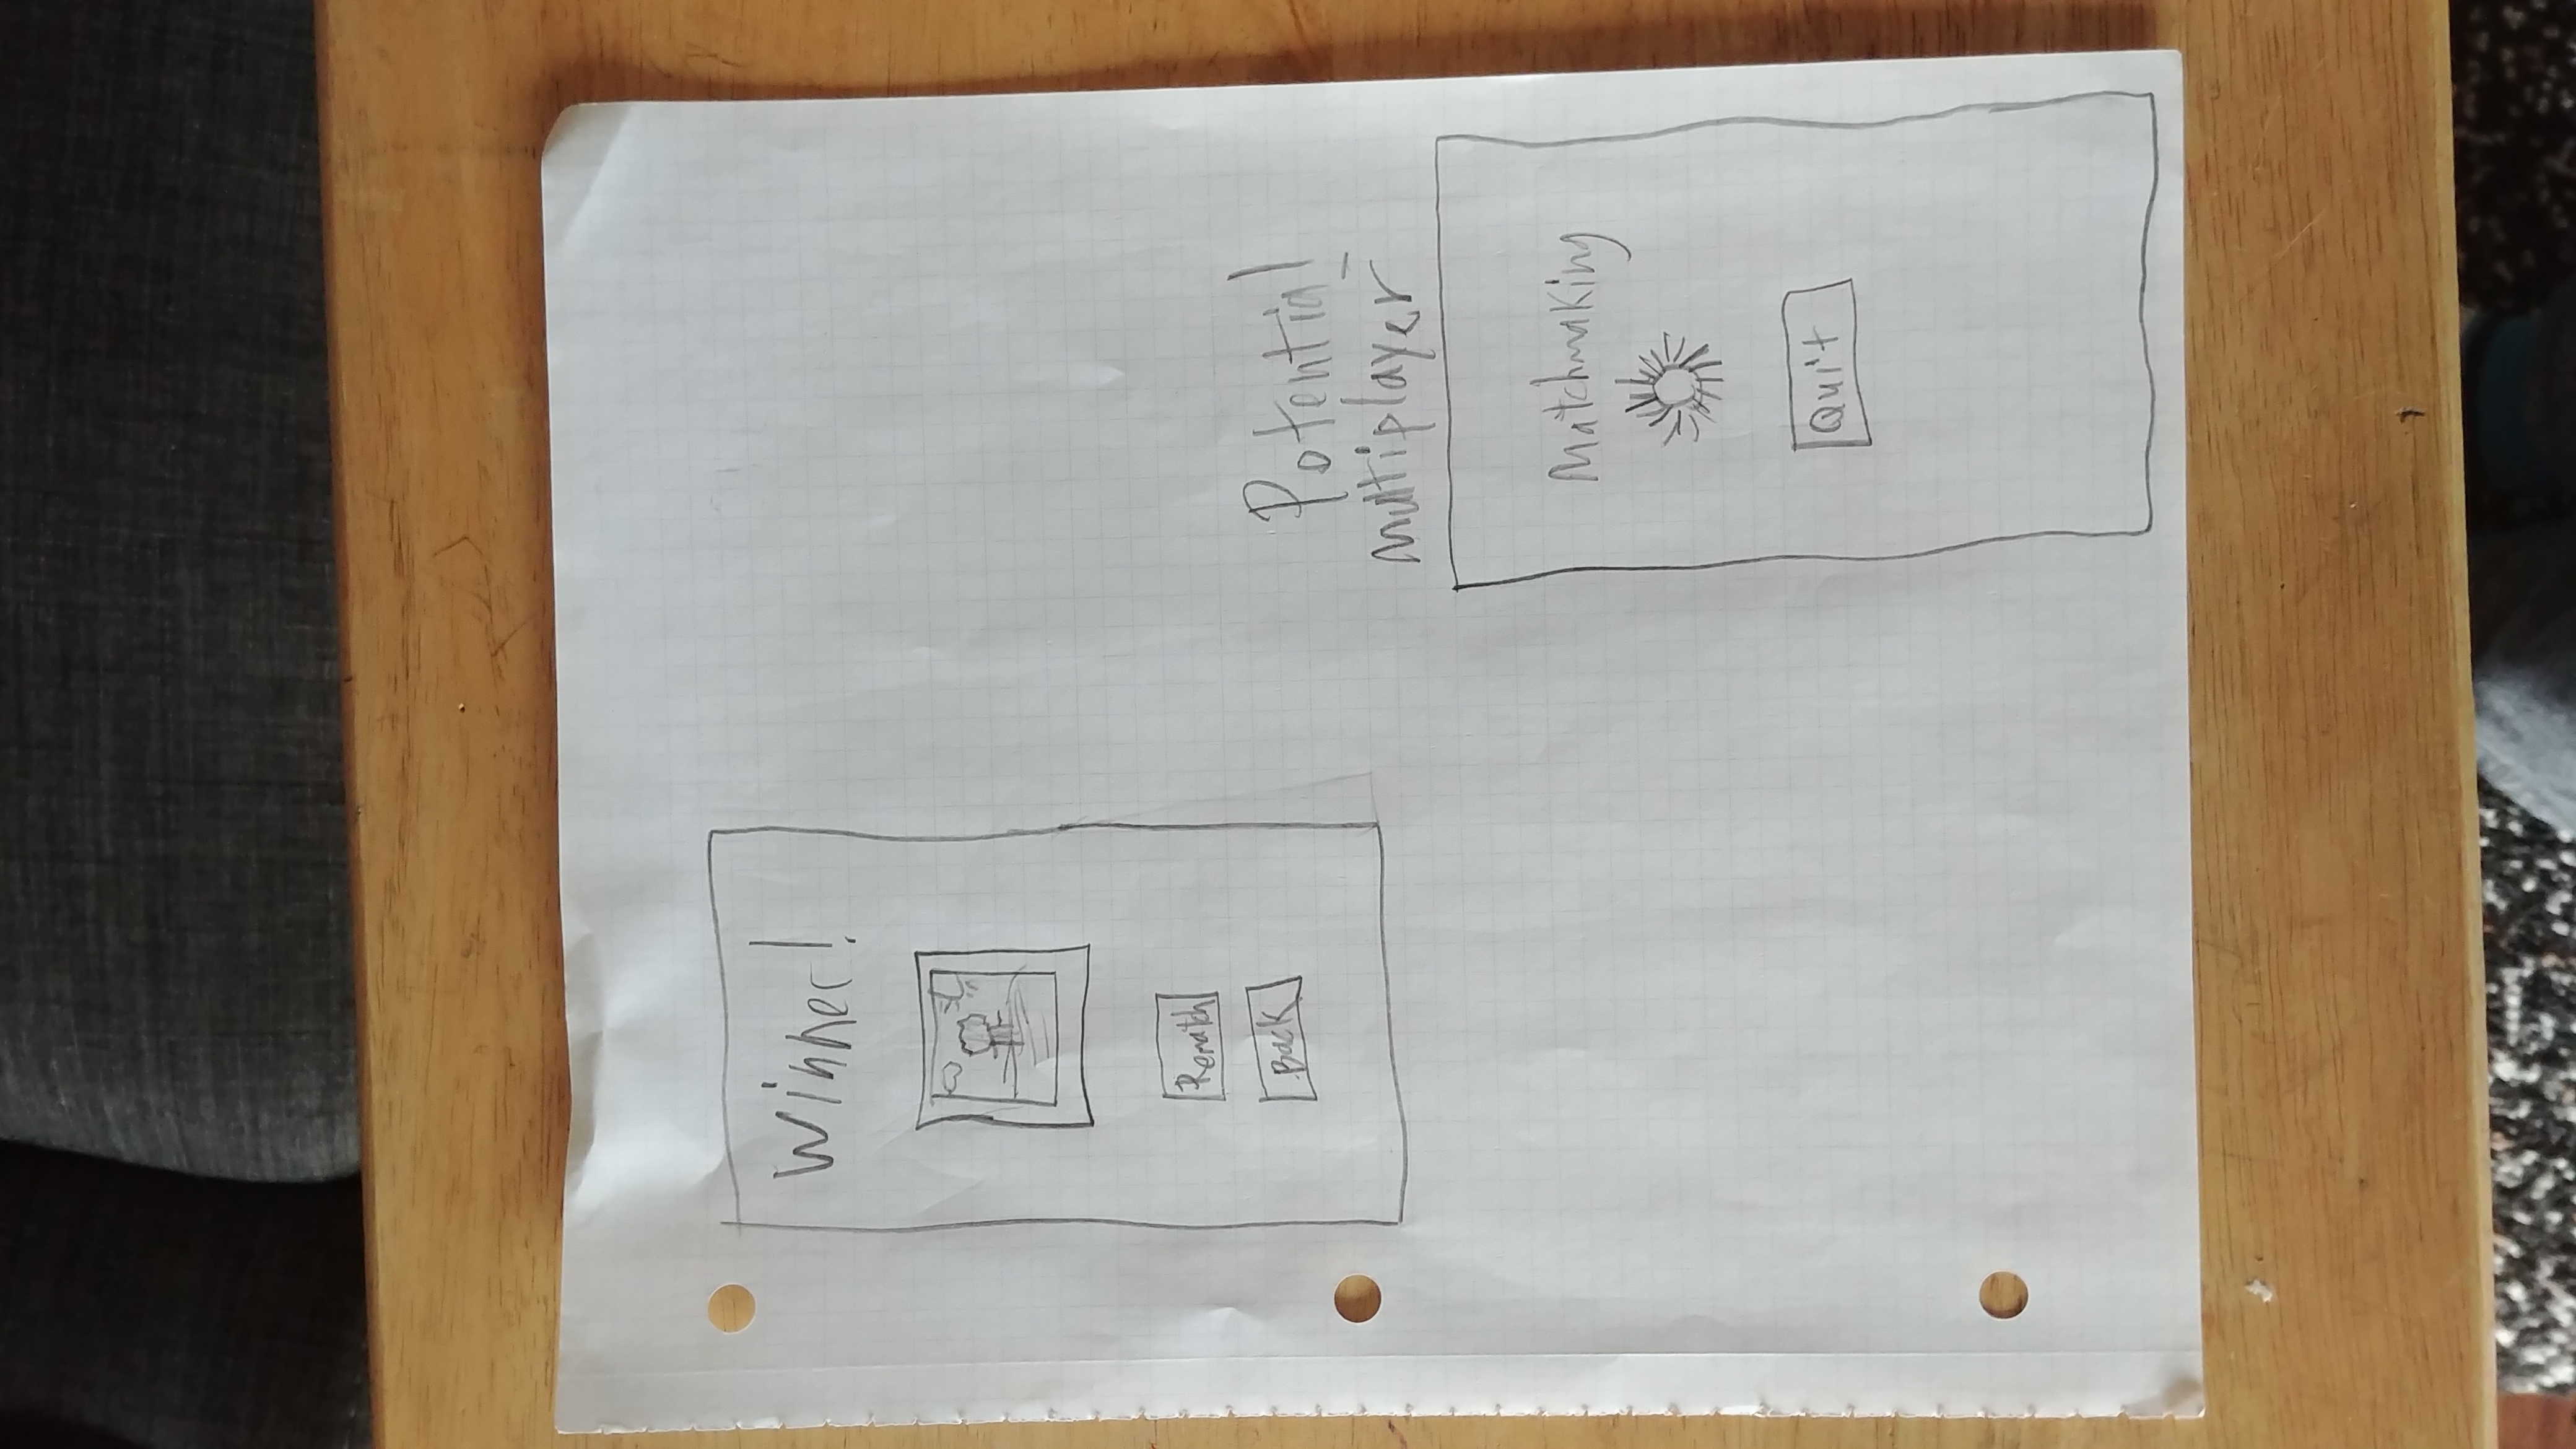 Winner!
Rematch
Back
Potential
multiplayer
Matchmaking
Quit